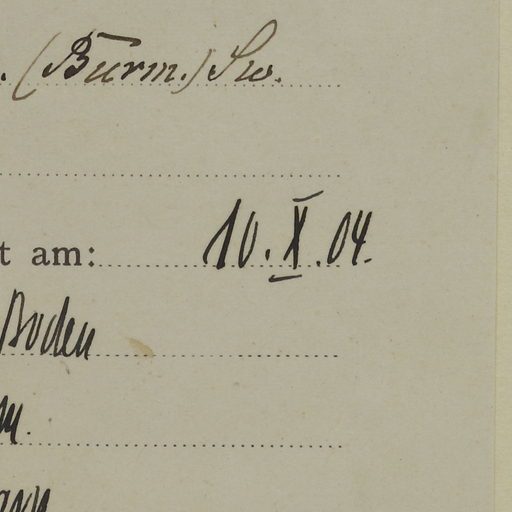 . (Burm.) Sw.
t am: 10. X. 04.
Boden
m.
ann